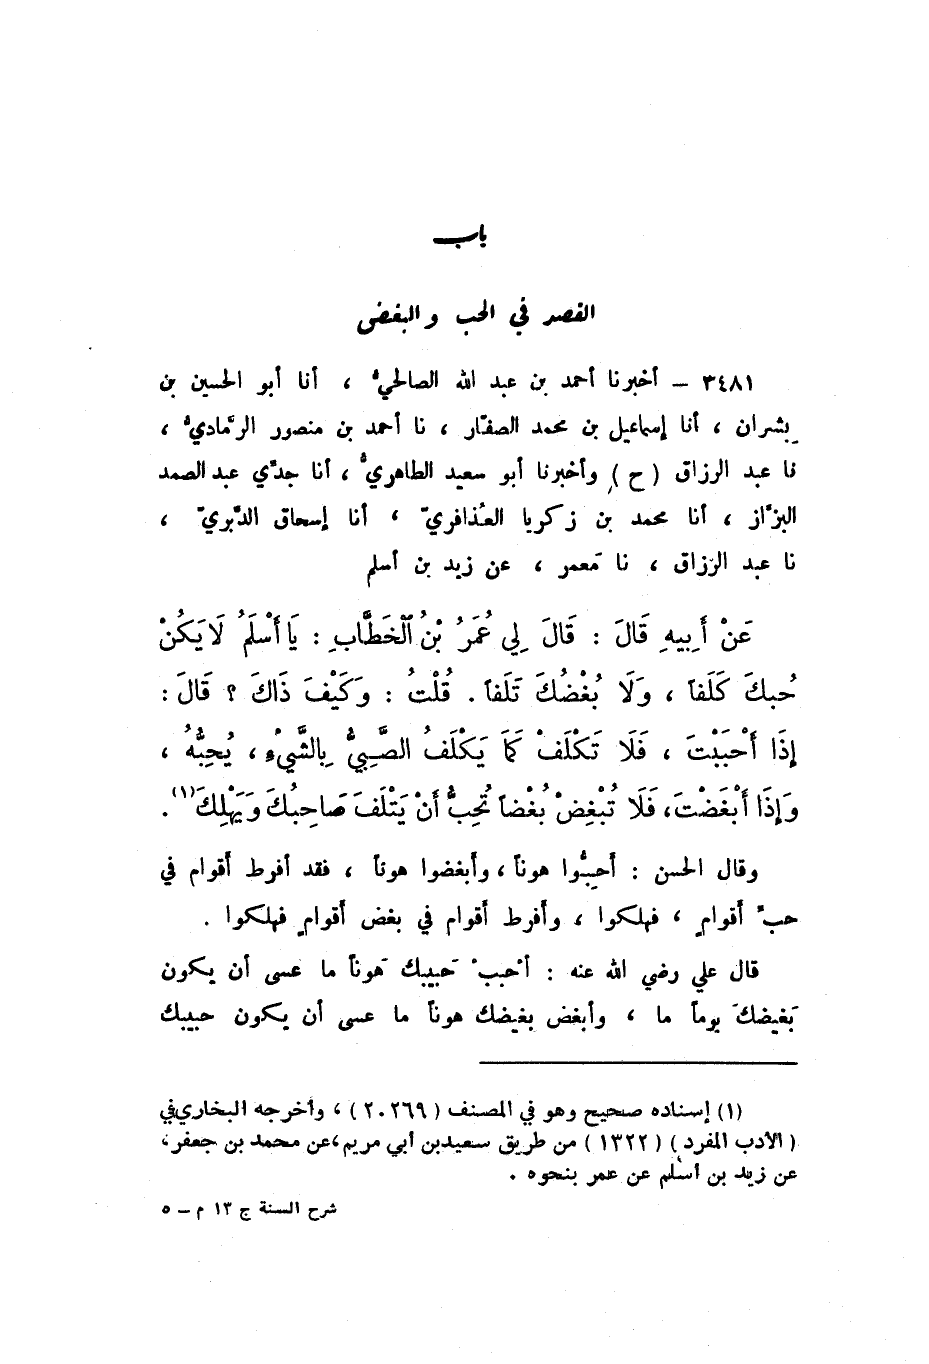 باب
القصد في الحب والبغض
٣٤٨١ – أخبرنا أحمد بن عبد الله الصالحيُّ ، أنا أبو الحسين بن
بِشران ، أنا إسماعيل بن محمد الصفّار ، نا أحمد بن منصور الرَّماديُّ ،
نا عبد الرزاق ( ح ) وأخبرنا أبو سعيد الطاهريُّ ، أنا جدّي عبد الصمد
البزَّاز ، أنا محمد بن زكريا العُذافريّ ، أنا إسحاق الدَّبريّ ،
نا عبد الرّزاق ، نا مَعمر ، عن زيد بن أسلم
عَنْ أَبِيهِ قَالَ : قَالَ لِي عُمَرُ بْنُ الْخَطَّابِ : يَا أَسْلَمُ لَا يَكُنْ
حُبكَ كَلَفاً ، وَلَا بُغْضُكَ تَلَفاً . قُلْتُ : وَكَيْفَ ذَاكَ ؟ قَالَ :
إِذَا أَحْبَبْتَ ، فَلَا تَكْلَفْ كَمَا يَكْلَفُ الصَّبِيُّ بِالشَّيْءِ ، يُحِبُّهُ ،
وَإِذَا أَبْغَضْتَ، فَلَا تُبْغِضْ بُغْضاً تُحِبُّ أَنْ يَتْلَفَ صَاحِبُكَ وَيَهْلِكَ(١) .
وقال الحسن : أَحِبُّوا هوناً ، وأبغضوا هوناً ، فقد أفرط أقوام في
حبّ أقوامٍ ، فهلكوا ، وأفرط أقوام في بغض أقوامٍ فهلكوا .
قال علي رضي الله عنه : أَحْبب حَبيبك هَوناً ما عسى أن يكون
بَغيضكَ يوماً ما ، وأبغض بغيضك هوناً ما عسى أن يكون حبيبك
(١) إسناده صحيح وهو في المصنف ( ٢٠٢٦٩ ) ، وأخرجه البخاري في
( الأدب المفرد ) ( ١٣٢٢ ) من طريق سعيد بن أبي مريم ، عن محمد بن جعفر ،
عن زيد بن أسلم عن عمر بنحوه .
شرح السنة ج ١٣ م – ٥